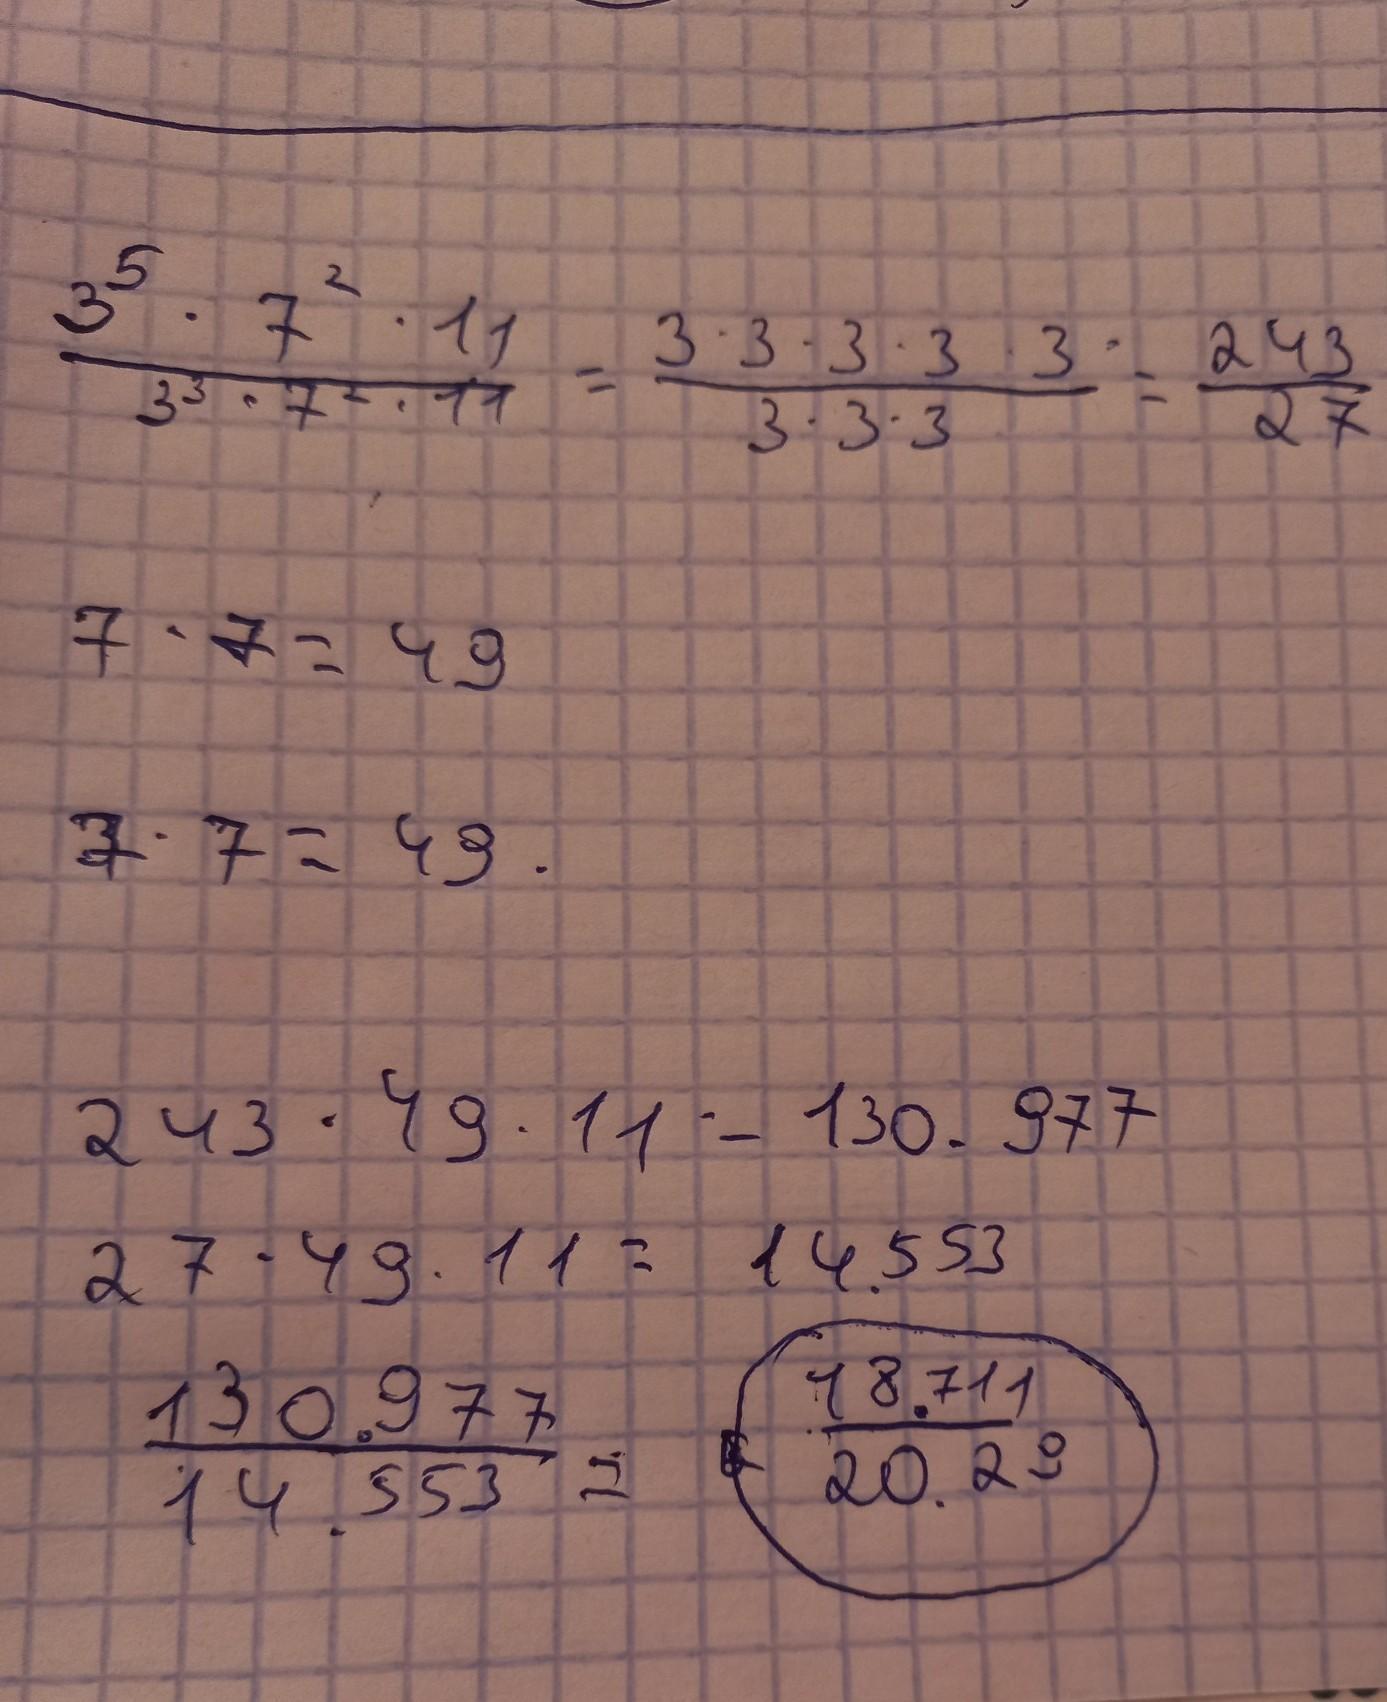 3⁵ · 7² · 11 / 3³ · 7² · 11 = 3 · 3 · 3 · 3 · 3 · / 3 · 3 · 3 = 243 / 27
7 · 7 = 49
7 · 7 = 49.
243 · 49 · 11 = 130.977
27 · 49 · 11 = 14.553
130.977 / 14.553 = 18.711 / 20.29